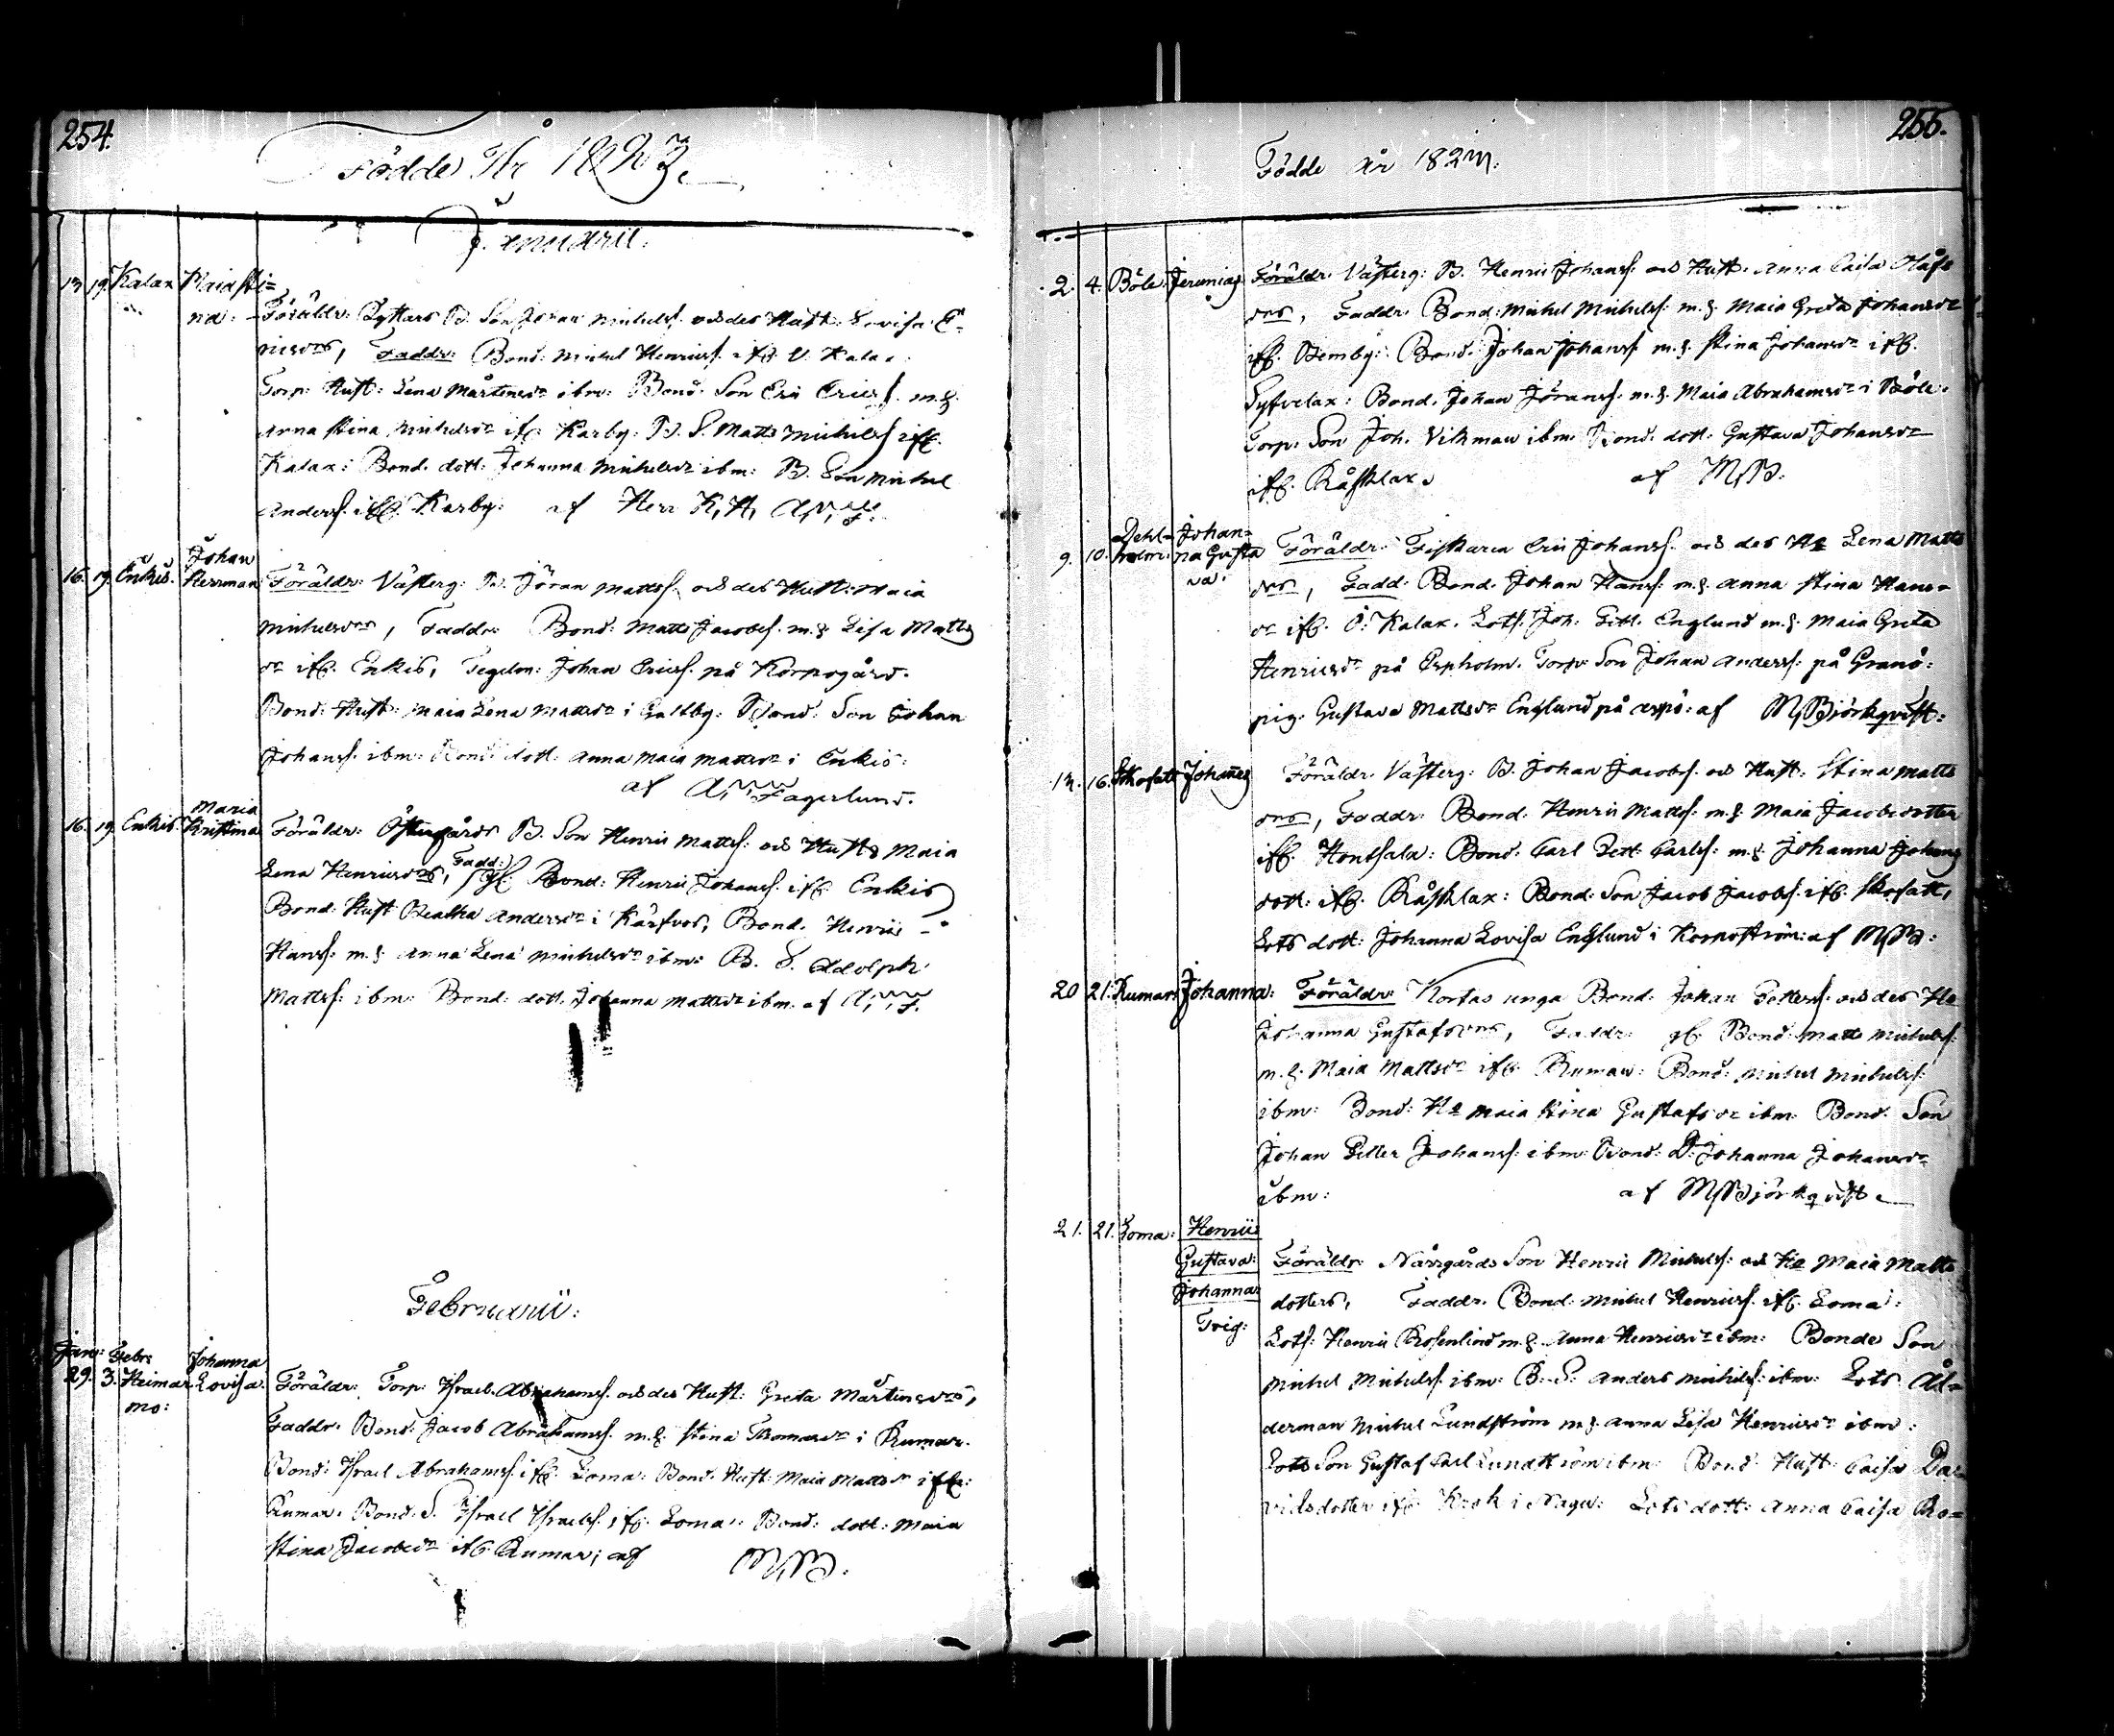 254.
Födde År 1823.
Januarii.
13 19. Kalax Maia Sti=
na: Föräldr: Ryttars B. Son Jöran Michelss. och des Hust: Lovisa E-
ricsdrs, Faddr: Bond: Michel Henricss. ifr. V. Kalax
Torp: Hust: Lena Mårtensdr ibm: Bond. Son Eric Ericss. m. h.
Anna Stina Michelsdr ifr. Karby: B. S. Matts Michelss ifr.
Kalax: Bond. dott: Johanna Michelsdr ibm: B. Son Michel
Anderss. ifr. Karby: af Herr K. H. A.
16. 19. Enkis. Johan
Herrman Föräldr: Västerg: B. Jöran Mattss. och des Hust: Maia
Michelsdrs, Faddr: Bond: Matts Jacobss. m. h. Lisa Matts
dr ifr. Enkis, Tegelm: Johan Ericss. på Korpogård.
Bond: Hust: Maia Lena Mattsdr i Galtby: Bond: Son Johan
Johanss. ibm: Bond: dott. Anna Maia Mattsdr i Enkis:
af A. Fagerlund.
16. 19. Enkis: Maria
Kristina Föräldr: Östergårds B. Son Henric Mattss: och Hust Maia
Lena Henricsdrs, Fadd: Bond: Henric Johanss. ifr. Enkis
Bond: Hust Beatha Andersdr i Kärfvos, Bond. Henric
Hanss: m. h. Anna Lena Michelsdr ibm: B. S. Adolph
Mattss: ibm: Bond: dott. Johanna Mattsdr ibm. af A. F.
Februarii:
Janu: Febr: Johanna
29. 3. Heimar Lovisa. Föräldr: Torp: Israel Abrahamss. och des Hust: Greta Mårtensdrs,
mo:
Faddr: Bond: Jacob Abrahamss. m. h. Stina Thomasdr i Rumar.
Bond: Israel Abrahamss. ifr. Loma: Bond: Hust Maia Mattsdr ifr:
Rumar: Bond: S. Israel Israelss. ifr. Loma: Bond: dott: Maia
Stina Jacobsdr ifr. Rumar; af M. B.
255.
Födde år 1823.
2. 4. Böle. Jeremias Föräldr. Västerg: B. Henric Johanss: och Hust: Anna Caisa Olofs
drs, Faddr. Bond: Michel Michelss: m. h. Maia Greta Johansdr
ifr. Bemby: Bond: Johan Johanss m. h. Stina Johansdr ifr.
Syfvelax: Bond. Johan Jöranss. m. h. Maia Abrahamsdr i Böle.
Torp: Son Joh. Vikman ibm. Bond. dott. Gustava Johansdr
ifr. Råsklax. af M. B.
9. 10. Dehl= Johan=
holm: na Gusta Föräldr: Fiskaren Eric Johanss. och des H. Lena Matts
va:
drs, Fadd: Bond. Johan Hanss: m. h. Anna Stina Hans=
dr ifr. Ö. Kalax. Lots. Joh. Englund m. h. Maia Greta
Henricsdr på Espholm. Torp: Son Johan Anderss: på Granö:
pig. Gustava Mattsdr Englund på Aspö: af M. Björkqvist:
13. 16. Skofatt Johannes Föräldr. Västerg: B. Johan Jacobss. och Hust: Stina Matts
drs, Faddr: Bond. Henric Mattss: m. h. Maia Jacobsdotter
ifr. Hontsala: Bond. Carl Carlss: m. h. Johanna Johans
dott: ifr. Råsklax: Bond: Son Jacob Jacobss. ifr. Skofatt,
Lots dott: Johanna Lovisa Englund i Korpoström: af M. B:
20 21. Rumar Johanna: Föräldr: Kortas unga Bond. Johan Petterss. och des H.
Johanna Gustafsdrs, Faddr: gl. Bond: Matts Michelss:
m. h. Maia Mattsdr ifr. Rumar: Bond: Michel Michelss:
ibm: Bond: H. Maia Stina Gustafsdr ibm: Bond: Son
Johan Petter Johanss: ibm: Bond: D: Johanna Johansdr
ibm: af M. Björkqvist
21. 21. Loma: Henric
Gustava: Föräldr. Norrgårds Son Henric Michelss: och H. Maia Matts
Johanna dotters, Faddr. Bond: Michel Henricss. ifr. Loma:
Trig: Lots: Henric Rosenlind m. h. Anna Henricsdr ibm: Bonde Son
Michel Michelss. ibm: B. S. Anders Michelss: ibm: Lots Ål=
derman Michel Lundström m. h. Anna Lisa Henricsdr ibm:
Lots Son Gustaf Carl Lundström ibm: Bond: Hust: Caisa Da-
vidsdotter ifr. Krok i Nagu: Lots dott: Anna Caisa Ro=